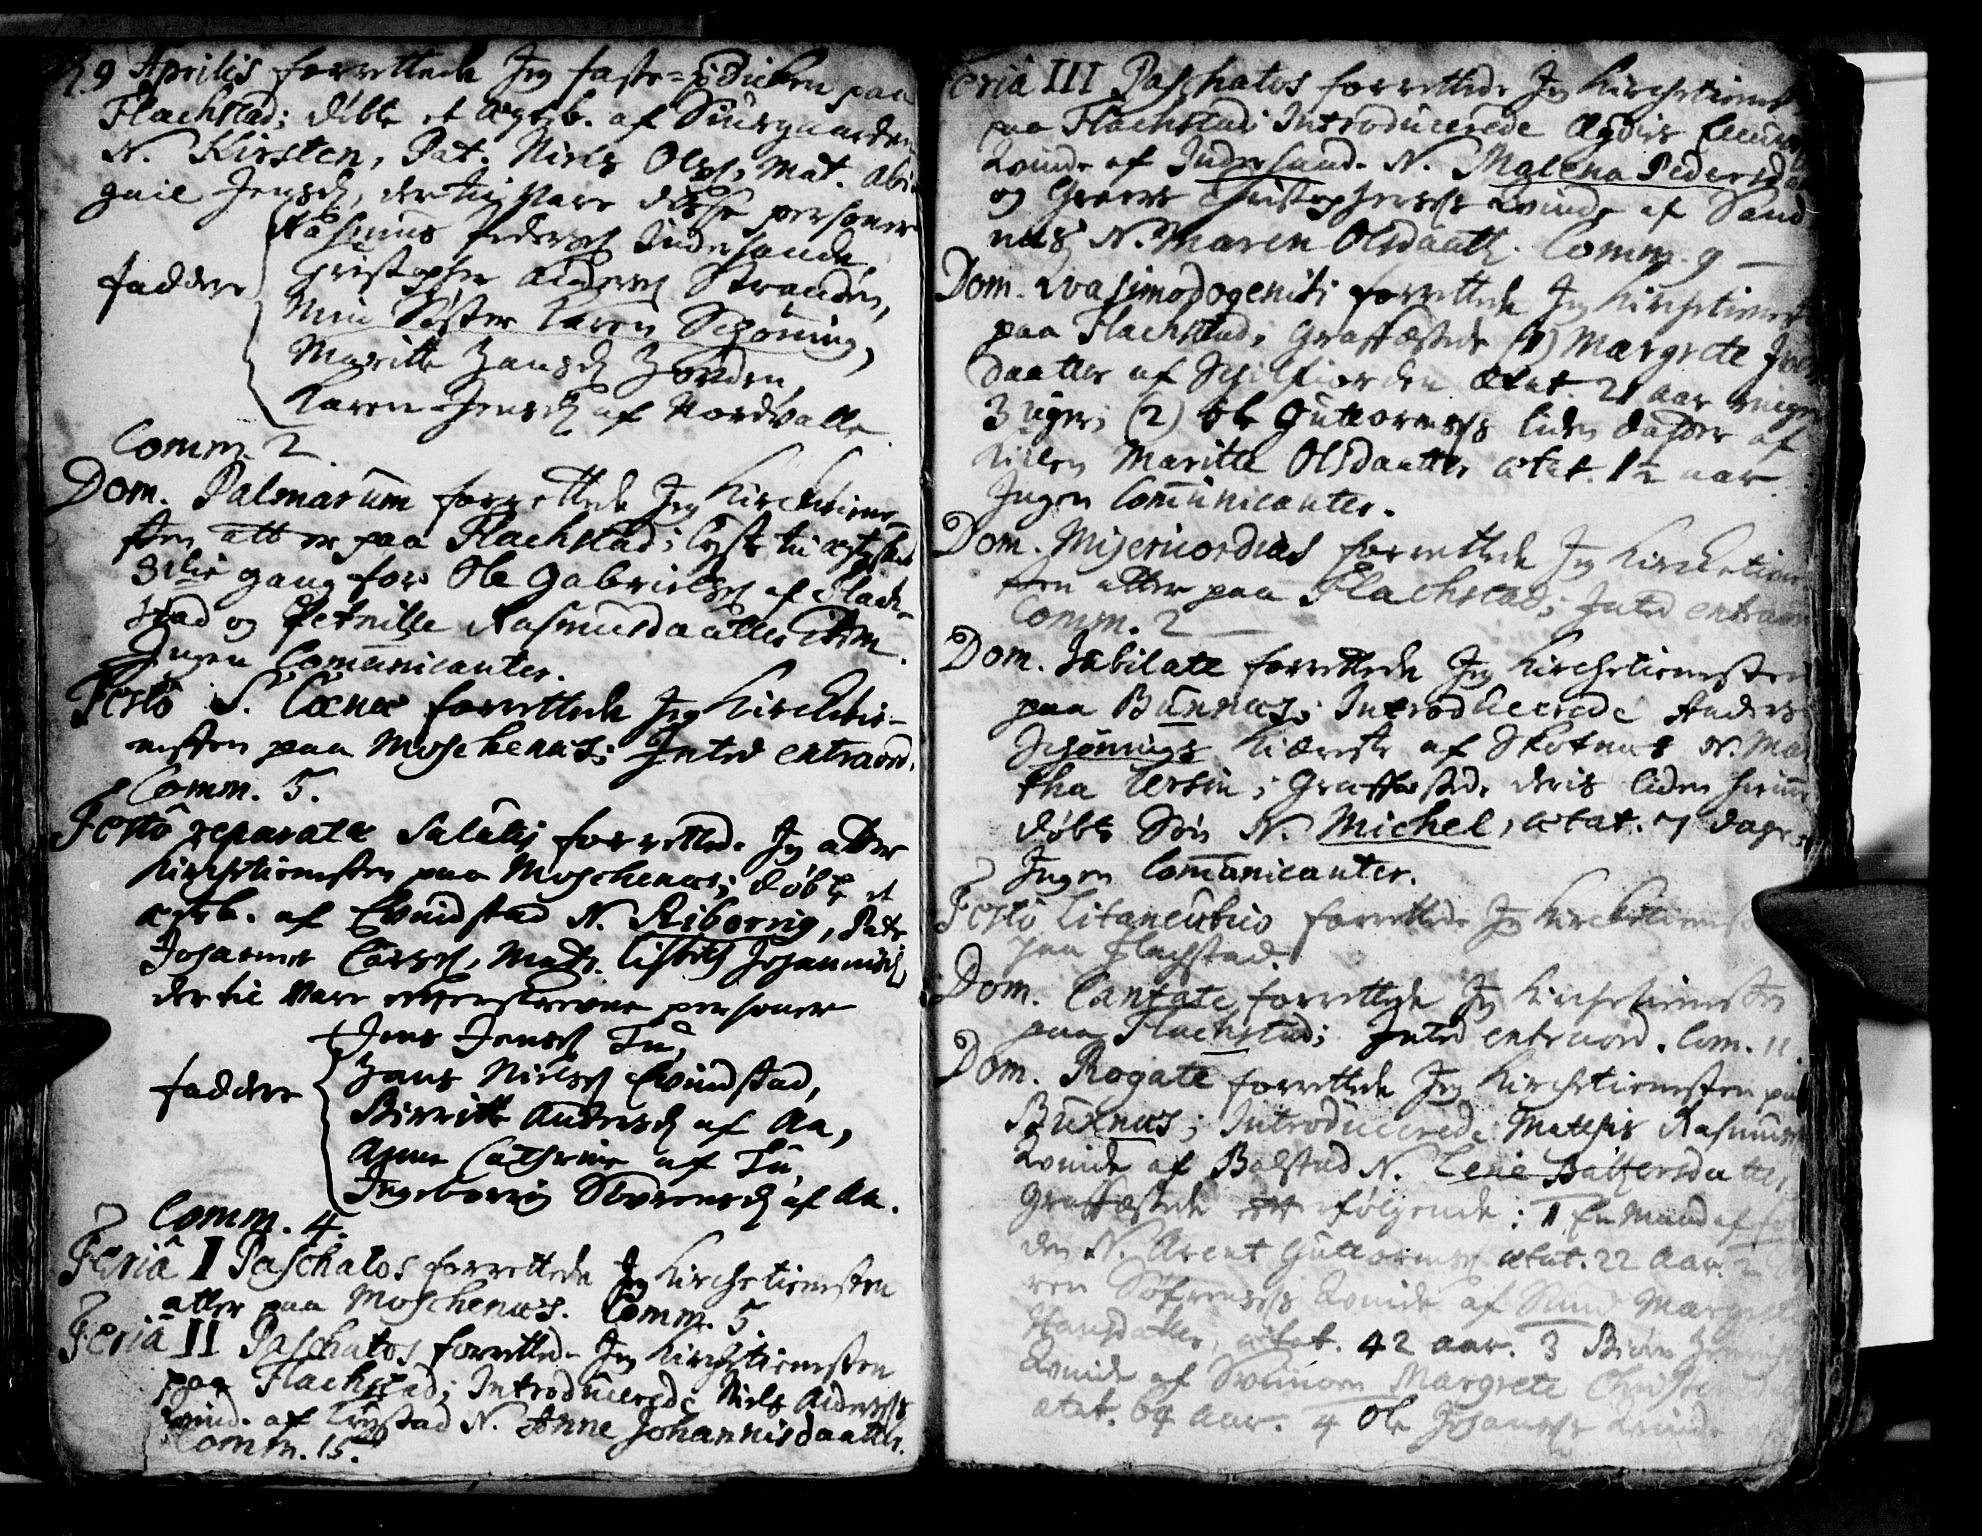 9 Aprilis forrettede Jeg faste-prædicken paa
Flachstad; døbte et ægteb. af Siusgaarden
N. Kirsten, Pat. Niels Ols., Mat. Abi-
gail Jensd, dertil vare disse personer
Rasmus Peders Indersande,
Christopher Anders Stranden,
faddere
Min Søster Karen Schøning,
Maritte Hansd
Karen Jensd af Nordvalle
Comm. 2.
Dom. Palmarum forrettede Jeg Kirchetiene-
sten atter paa Flachstad; lyste til ægteskab
3die gang for Ole Gabriels af Flach-
stad og Petnille Rasmusdaatter ibm.
Ingen Communicanter.
Festo S. Cænæ forrettede Jeg Kirchetie-
nesten paa Moschenæs; Inted extraord.
Comm. 5.
Festo reparatæ Salutis forrettede Jeg atter
Kirchetienesten paa Moschenæs; døbte et
ægteb. af Evindstad N. Riborrig, Pater
Johannes Lars, Mater Lisbeth Johannisd,
dertil vare efterskrevne personer
Jens Jens Tu,
Hans Niels Evindstad,
faddere
Birritte Andersd af Aa,
Anne Cathrine af Tu
Ingeborrig Sørensd af Aa.
Comm. 4.
Feria I Paschatos forrettede Jeg Kirchetienesten
atter paa Moschenæs. Comm. 5.
Feria II Paschatos forrettede Jeg Kirchetienesten
paa Flachstad; Introducerede Niels Anders
qvinde af N. Anne Johannisdaatter.
Comm. 15.
Feria III Paschatos forrettede Jeg Kirchetienest
paa Flachstad; Introducerede
Qvinde af Indersand. N. Malena Pedersdaa
og Christophers Qvinde af Sand
næs N. Maren Olsdaatt. Comm. 9
Dom. Qvasimodogeniti forrettede Jeg Kirchetienest
paa Flachstad; Graffæstede (1) Margrete
daatter af ætat. 21 aar
3 uger; (2) Ole Guttorms liden datter af
Maritte Olsdaatter ætat. 1½ aar.
Ingen Communicanter.
Dom. Misericordias forrettede Jeg Kirchetiene
sten atter paa Flachstad; Inted extraor
Comm. 2
Dom. Jubilate forrettede Jeg Kirchetienesten
paa Buxnæs; Introducerede Anders
Schønings Kiæreste af Skotnæs N. Mar
tha ; Graffæstede deris liden hiemme
døbte Søn N. Michel, ætat. 7 dage.
Ingen Communicanter.
Festo Litaneutico forrettede Jeg Kirchetienest
paa Flachstad.
Dom. Cantate forrettede Jeg Kirchetienesten
paa Flachstad; Inted extraord. Com. 11.
Dom. Rogate forrettede Jeg Kirchetienesten paa
Buxnæs; Introducerede Mathis Rasmus
Qvinde af Balstad N. Lene Baltzersdatter
Graffæstede efterfølgende; 1 En Mand af
den N. Arent Guttorms ætat. 22 Aar. 2
ren Søfrens Qvinde af Sund Margrete
Hansdatter, ætat. 42 aar. 3
Qvinde af Margrete Christ
ætat. 64 Aar. 4 Ole Johans Qvinde